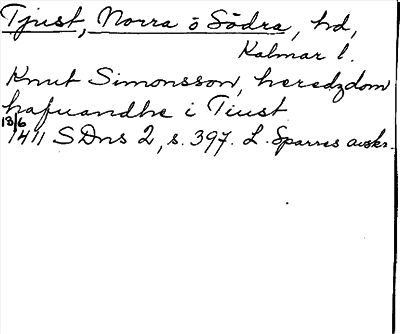 Tjust, Norra o Södra, hd,
Kalmar l.
Knut Simonsson, heredzdom
hafuandhe i Tiust
13/6
1411 SDns 2, s. 397. L. Sparres avskr.